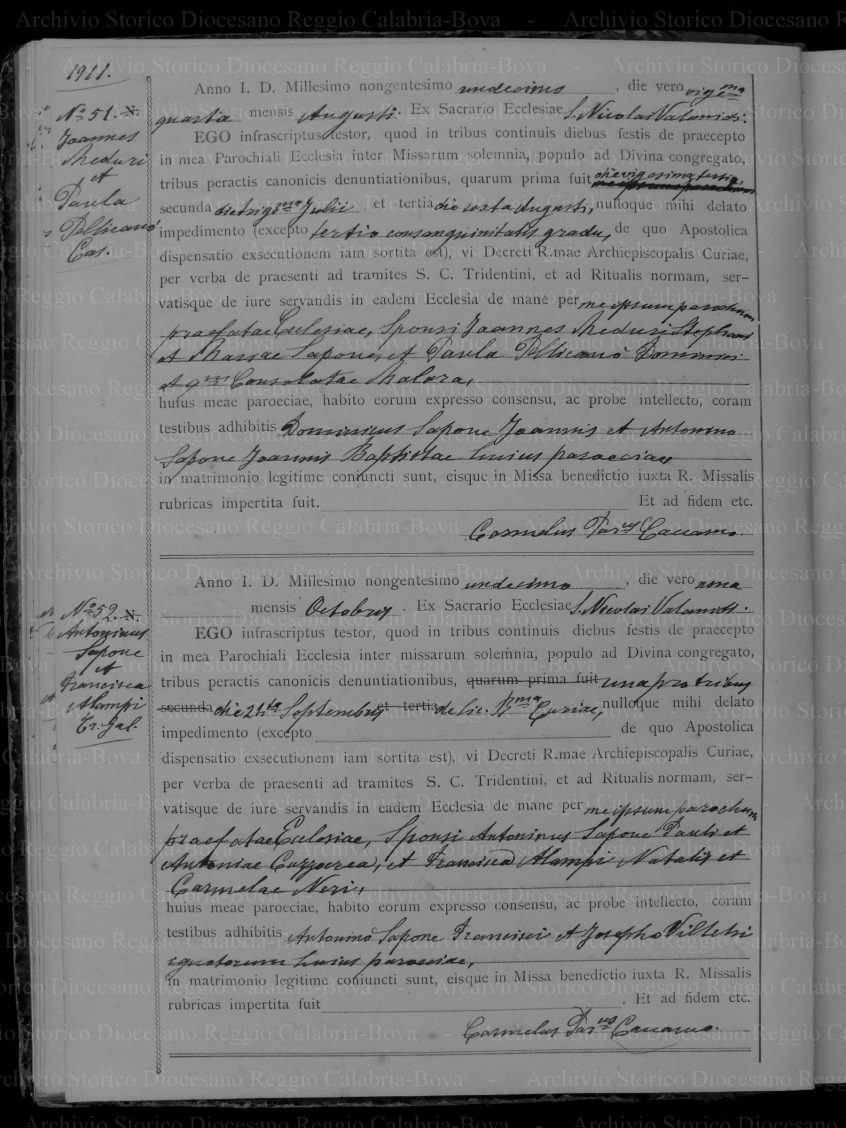 1911.
Anno I. D. Millesimo nongentesimo undecimo, die vero vigema
No 51. N.
quarta mensis Augusti. Ex Sacrario Ecclesiae S. Nicolai
Joannes
EGO infrascriptus testor, quod in tribus continuis diebus festis de praecepto
Meduri
in mea Parochiali Ecclesia inter Missarum solemnia, populo ad Divina congregato,
et
tribus peractis canonicis denuntiationibus, quarum prima fuit die vigesima tertia,
Paula
secunda die trigema Julii et tertia die sexta Augusti, nulloque mihi delato
Pellicanò
impedimento (excepto tertio consanguinitatis gradu, de quo Apostolica
Cas.
dispensatio exsecutionem iam sortita est), vi Decreti R.mae Archiepiscopalis Curiae,
per verba de praesenti ad tramites S. C. Tridentini, et ad Ritualis normam, ser-
vatisque de iure servandis in eadem Ecclesia de mane per meipsum parochum
praefatae Ecclesiae, Sponsi Joannes Meduri Stephani
et Mariae Sapone, et Paula Pellicanò Dominici
et qm Consolatae Malara,
huius meae paroeciae, habito eorum expresso consensu, ac probe intellecto, coram
testibus adhibitis Dominicus Sapone Joannis et Antonino
Sapone Joannis Baptistae huius paroeciae
in matrimonio legitime coniuncti sunt, eisque in Missa benedictio iuxta R. Missalis
rubricas impertita fuit. Et ad fidem etc.
Carmelus Parus Caccamo.
Anno I. D. Millesimo nongentesimo undecimo, die vero nona
No 52. N.
mensis Octobris. Ex Sacrario Ecclesiae S. Nicolai
Antoninus
EGO infrascriptus testor, quod in tribus continuis diebus festis de praecepto
Sapone
in mea Parochiali Ecclesia inter missarum solemnia, populo ad Divina congregato,
et
Francisca
tribus peractis canonicis denuntiationibus, quarum prima fuit una pro tribus
Alampi
secunda die 24ta Septembris et tertia de lic. Rma Curiae, nulloque mihi delato
Tr. Gal.
impedimento (excepto de quo Apostolica
dispensatio exsecutionem iam sortita est), vi Decreti R.mae Archiepiscopalis Curiae,
per verba de praesenti ad tramites S. C. Tridentini, et ad Ritualis normam, ser-
vatisque de iure servandis in eadem Ecclesia de mane per meipsum parochum
praefatae Ecclesiae, Sponsi Antoninus Sapone Pauli et
Antoniae Cozzucrea, et Francisca Alampi Natalis et
Carmelae Neri,
huius meae paroeciae, habito eorum expresso consensu, ac probe intellecto, coram
testibus adhibitis Antonino Sapone Francisci et Josepho
huius paroeciae,
in matrimonio legitime coniuncti sunt, eisque in Missa benedictio iuxta R. Missalis
rubricas impertita fuit. Et ad fidem etc.
Carmelus Parus Caccamo.